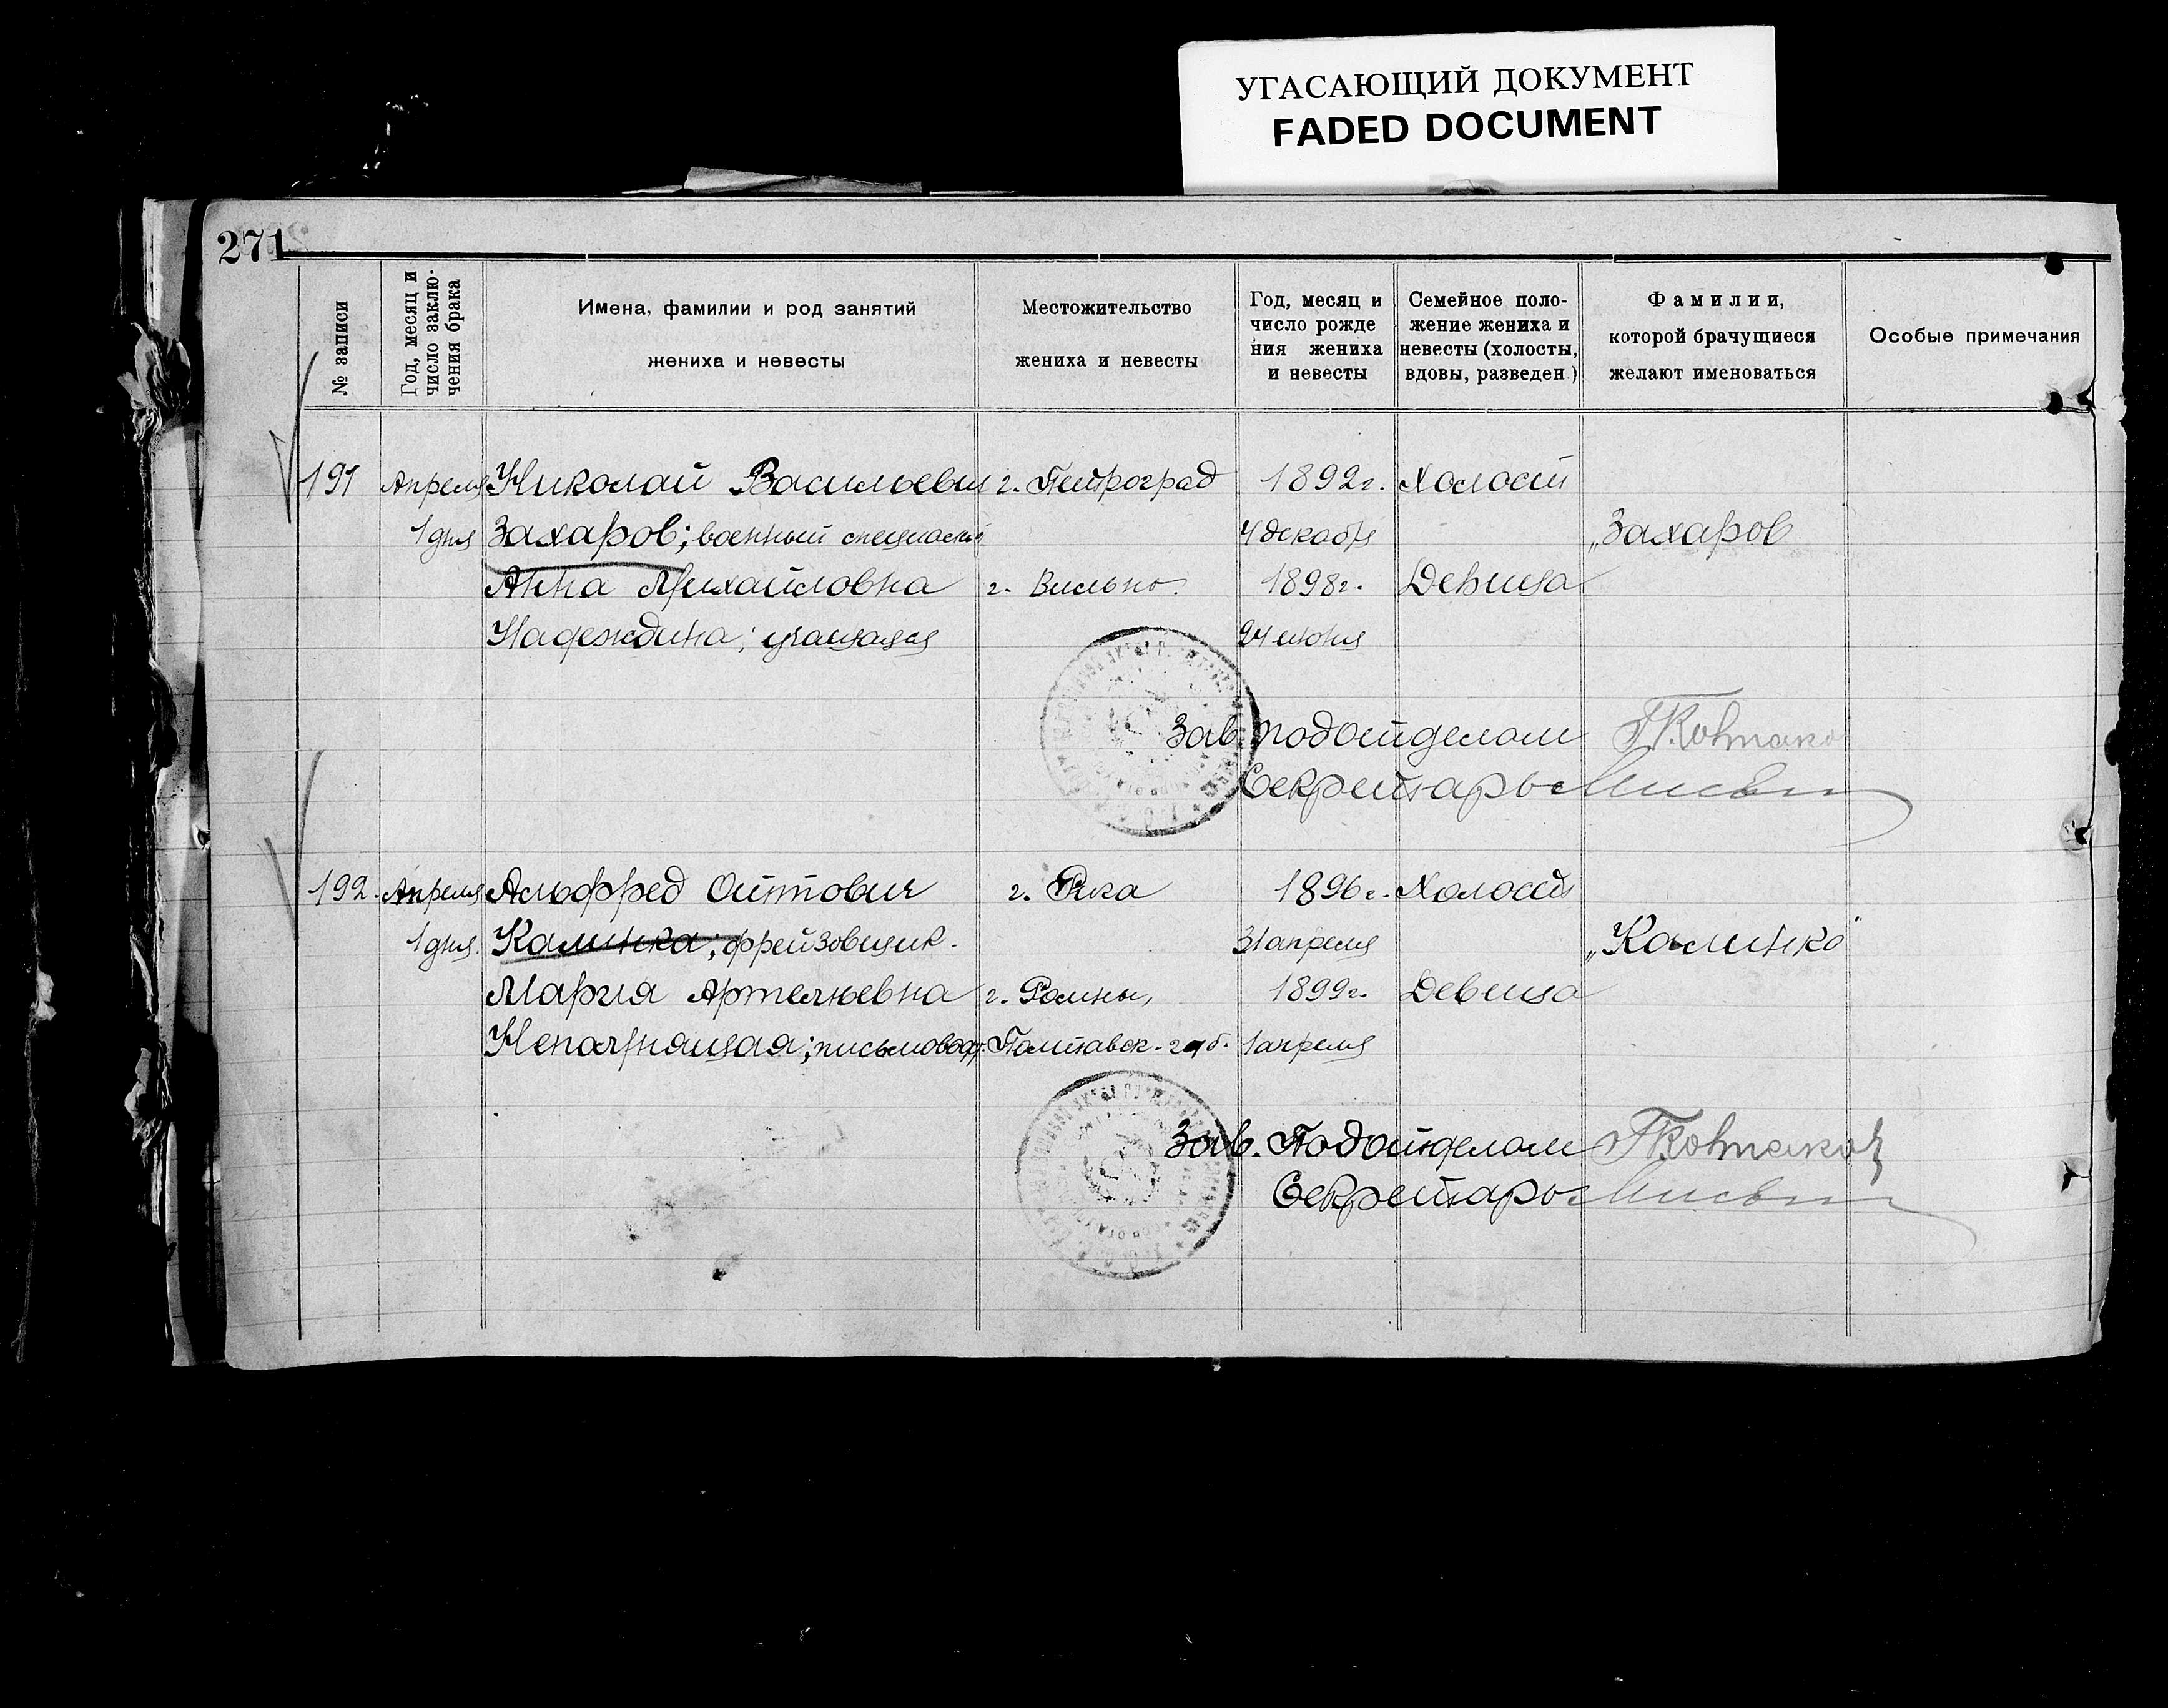 УГАСАЮЩИЙ ДОКУМЕНТ
FADED DOCUMENT
271
№ записи
Год, месяц и число заклю-чения брака
Имена, фамилии и род занятий жениха и невесты
Местожительство жениха и невесты
Год, месяц и число рожде ния жениха и невесты
Семейное поло-жение жениха и невесты (холосты, вдовы, разведен.)
Фамилии, которой брачущиеся желают именоваться
Особые примечания
191 Апреля Николай Васильевич г. Петроград 1892г. Холост
1 дня Захаров; военный специалист 4 декабря „Захаров
Анна Михайловна г. Вильно. 1898г. Девица
Надеждина; учащаяся 24 июня
Зав. подотделом
Секретарь
192. Апреля Альфред Оттович г. Рига 1896г. Холост
1 дня. Калинка; фрейзовщик. 31 апреля „Калинко"
Мария Артемьевна г. Ромны, 1899г. Девица
письмовод. Полтавск. губ. 1 апреля
Зав. Подотделом
Секретарь